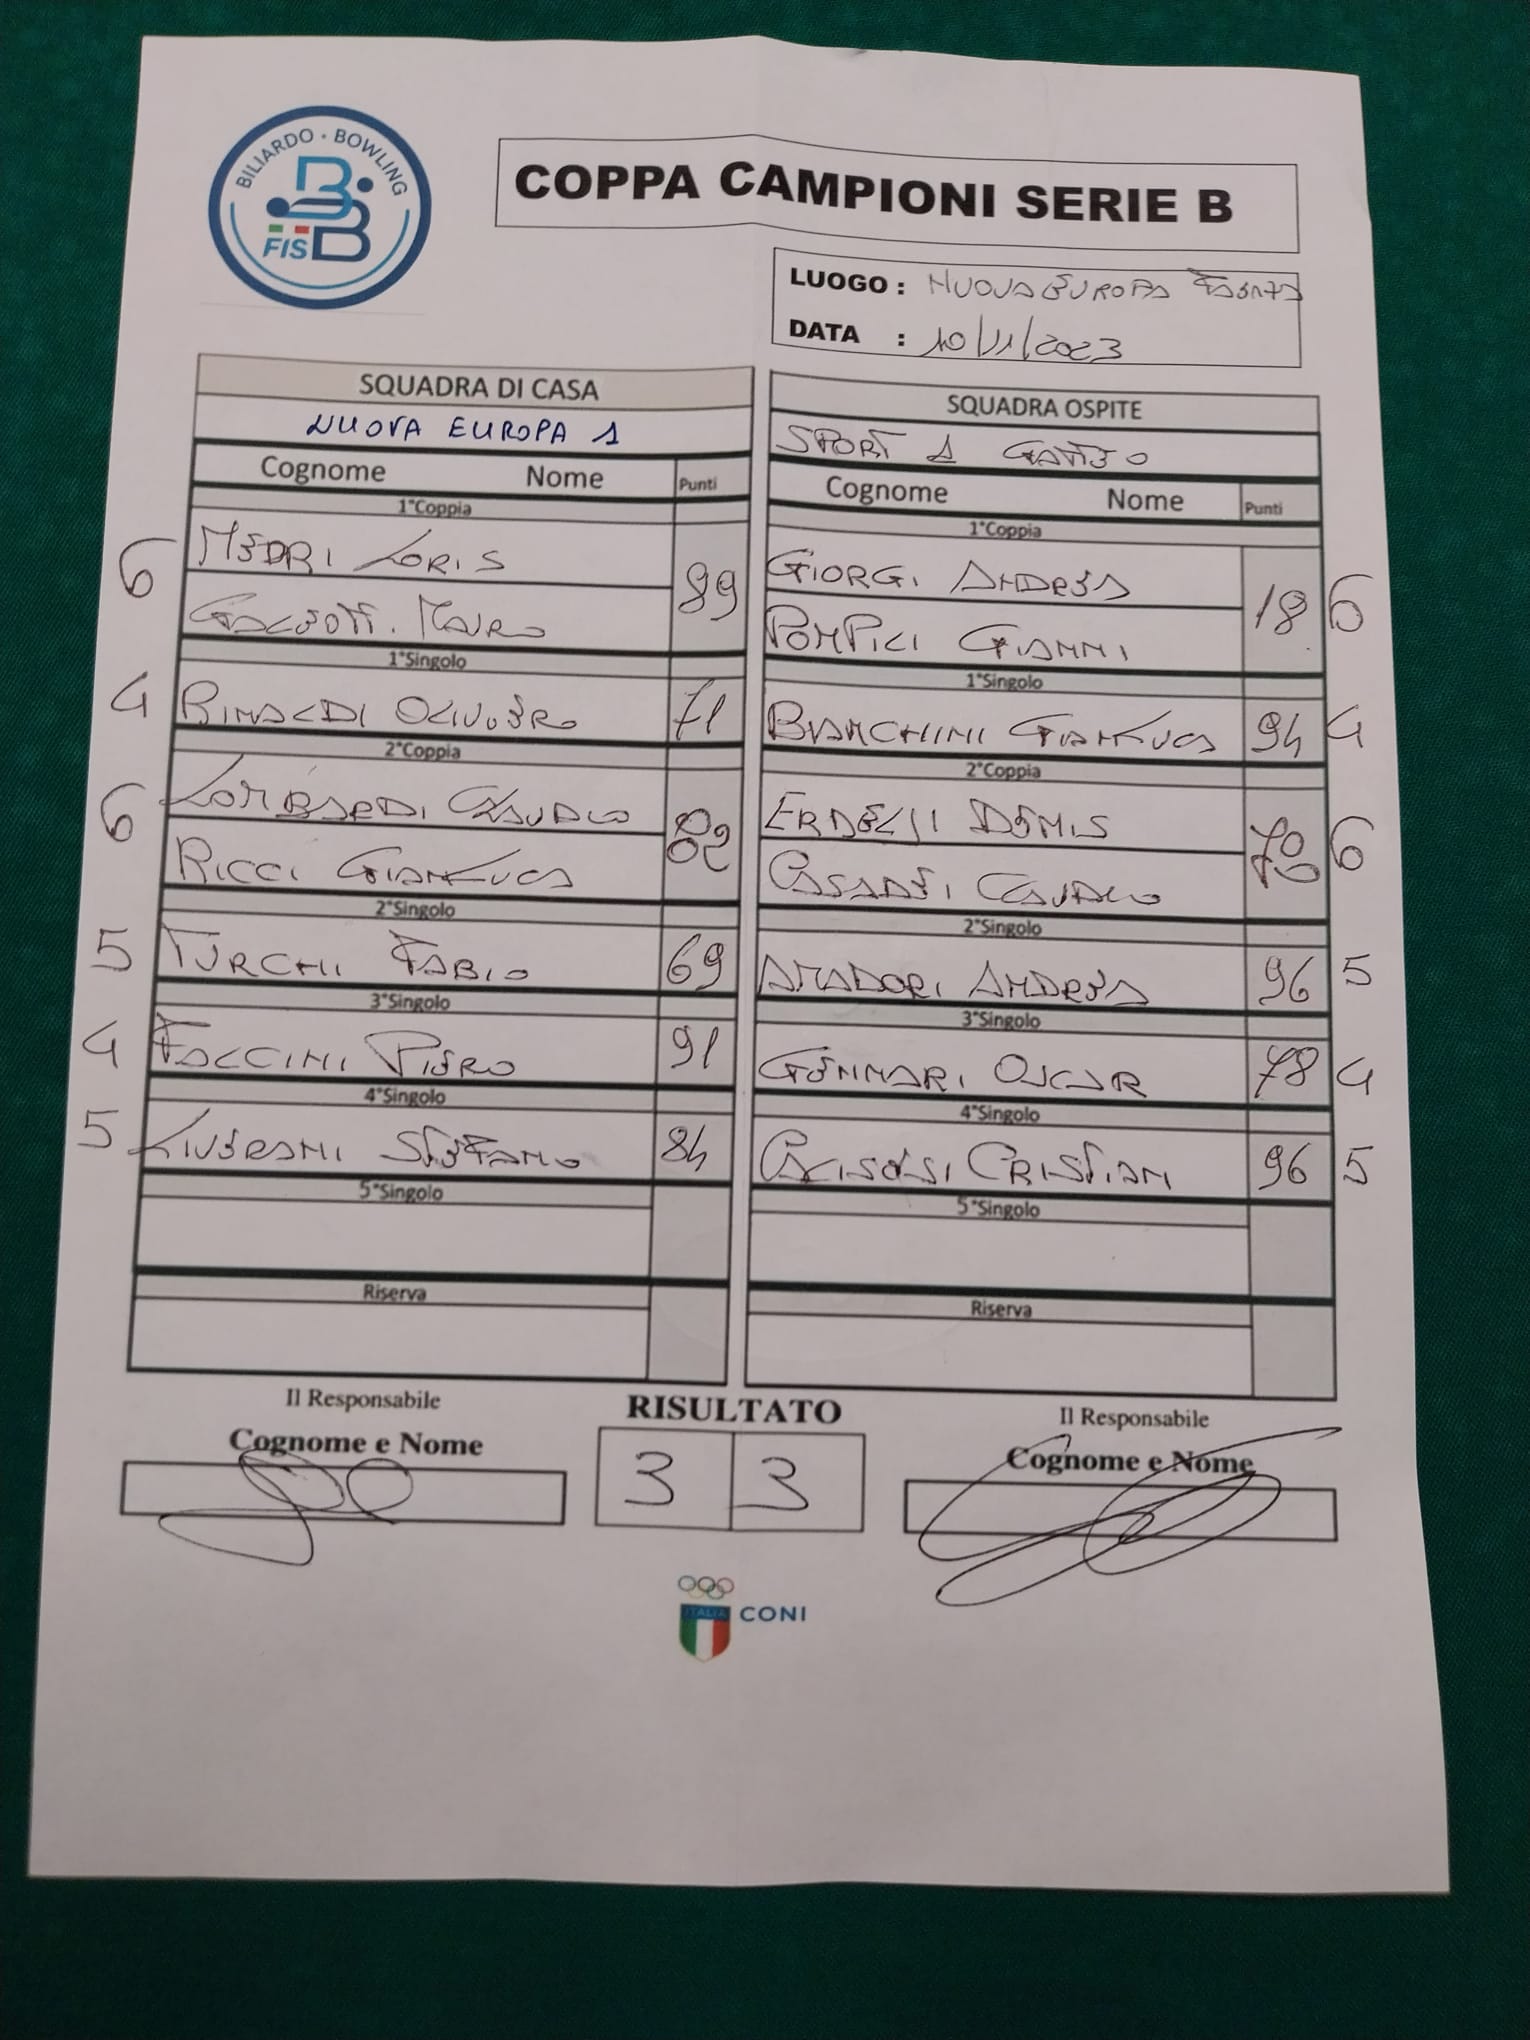 BILIARDO · BOWLING
FISBB
COPPA CAMPIONI SERIE B
LUOGO : NUOVA EUROPA FAENZA
DATA : 10/11/2023
SQUADRA DI CASA
NUOVA EUROPA 1
Cognome Nome Punti
1°Coppia
6 MEDRI LORIS 89
GALEOTTI MAURO
1°Singolo
4 RINALDI OLIVIERO 71
2°Coppia
6 LOMBARDI CLAUDIO 82
RICCI GIANLUCA
2°Singolo
5 TURCHI FABIO 69
3°Singolo
4 FACCINI PIERO 91
4°Singolo
5 LIVERANI STEFANO 84
5°Singolo
Riserva
SQUADRA OSPITE
SPORT 1 GATTEO
Cognome Nome Punti
1°Coppia
GIORGI ANDREA 18 6
POMPILI GIANNI
1°Singolo
BIANCHINI GIANLUCA 94 4
2°Coppia
ERDELJI DENIS 70 6
CASADEI CLAUDIO
2°Singolo
AMADORI ANDREA 96 5
3°Singolo
GENNARI OSCAR 78 4
4°Singolo
CRISTIAN 96 5
5°Singolo
Riserva
Il Responsabile
Cognome e Nome
RISULTATO
3 3
Il Responsabile
Cognome e Nome
ITALIA
CONI